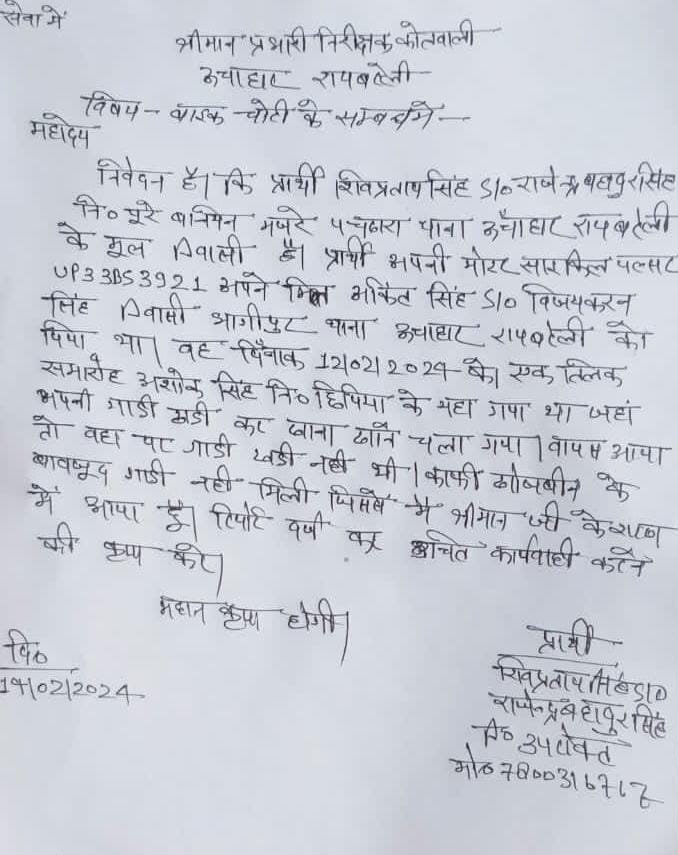 सेवा में
श्रीमान प्रभारी निरीक्षक कोतवाली
ऊचाहार रायबरेली
विषय - बाइक चोरी के सम्बन्ध में -
महोदय
निवेदन है। कि प्रार्थी शिवप्रताप सिंह S/० राजेन्द्र बहादुर सिंह
नि० पूरे बनियन मजरे पचखरा थाना ऊँचाहार रायबरेली
के मूल निवासी है। प्रार्थी अपनी मोटर साइकिल पल्सर
UP33BS3921 अपने मित्र अंकित सिंह S/० विजयकरन
सिंह निवासी थाना ऊचाहार रायबरेली को
दिया था। वह दिनांक 12/02/2024 को एक तिलक
समारोह अशोक सिंह नि० छिपिया के यहा गया था जहां
अपनी गाडी खडी कर खाना खाने चला गया। वापस आया
तो वहा पर गाडी खडी नही थी। काफी खोजबीन के
बावजूद गाडी नही मिली जिससे मै श्रीमान जी के शरण
में आया हूँ। रिपोर्ट दर्ज कर उचित कार्यवाही करने
की कृपा करे।
महान कृपा होगी।
प्रार्थी
शिवप्रताप सिंह S/O
राजेन्द्र बहादुर सिंह
नि० उपरोक्त
मो० 7800316717
दि०
14/02/2024